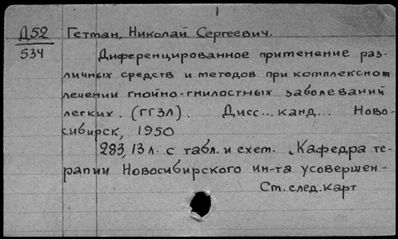 Д52 Гетман, Николай Сергеевич.
534 Диференцированное применение раз-
личных средств и методов при комплексном
лечении гнойно-гнилостных заболеваний
легких. (ГГЗЛ). Дисс... канд... Ново-
сибирск, 1950
283, 13 л. с табл. и схем. (Кафедра те-
рапии Новосибирского ин-та усовершен-
Ст. след. карт